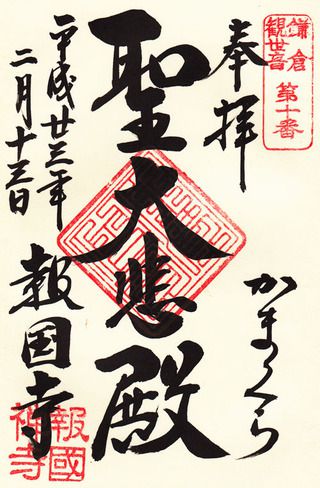 鎌倉
観世音
第十番
奉拝
かまくら
聖大悲殿
平成廿三年
二月十三日
報国寺
報國
禅寺